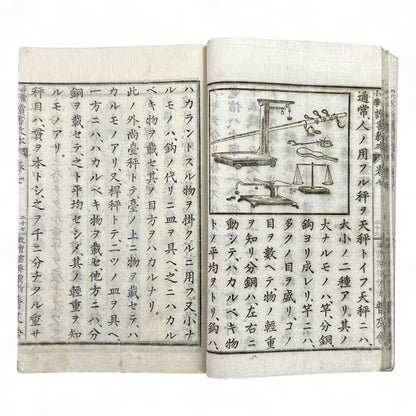 通常人ノ用フル秤ヲ天秤トイフ天秤ニハ、
大小ノ二種アリ。其ノ
大ナルモノハ、竿、分銅、
鈎ヨリ成レリ。竿ニハ、
多クノ目ヲ盛リ、コノ
目ヲ數ヘテ物ノ輕重
ヲ知リ、分銅ハ、左右ニ
動シテハカルベキ物
ト平均ヲトリ、鈎ハ、
ハカラントスル物ヲ掛クルニ用フ。又小ナ
ルモノハ、鈎ノ代リニ皿ヲ具ヘ、之ニハカル
ベキ物ヲ載セ其ノ目方ヲハカルナリ。
此ノ外尚臺秤トテ臺ノ上ニ物ヲ載セテ、ハ
カルモノアリ。又桿秤トテ二ツノ皿ヲ具ヘ、
一方ニハ、ハカルベキ物ヲ載セ他方ニハ、分
銅ヲ載セテ之ト平均セシメ、其ノ輕重ヲ知
ルモノアリ。
秤目ハ、貫ヲ本トシ、之ヲ千ニ分チタル重サ